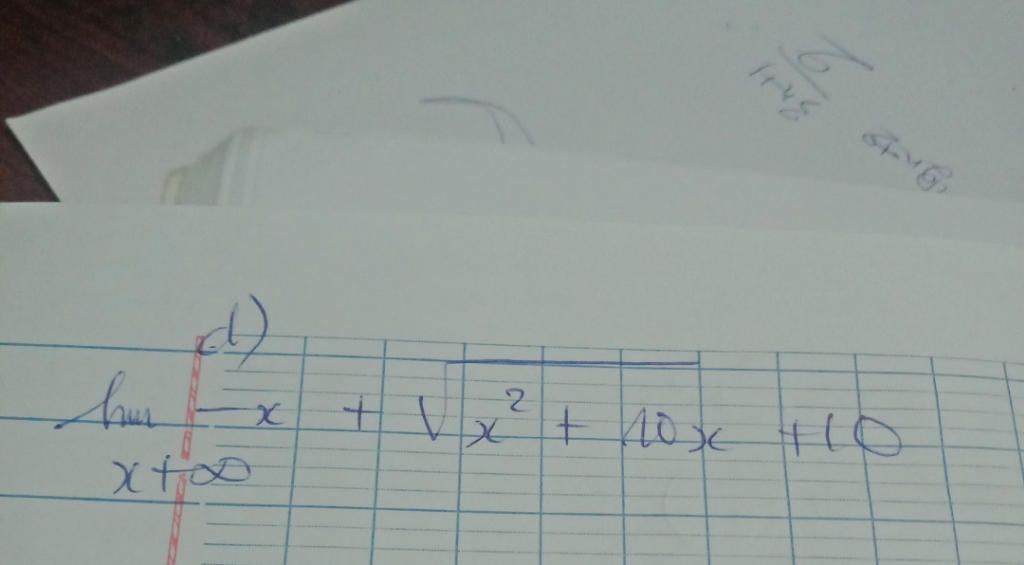 d)
lim -x + √x² + 10x + 10
x +∞